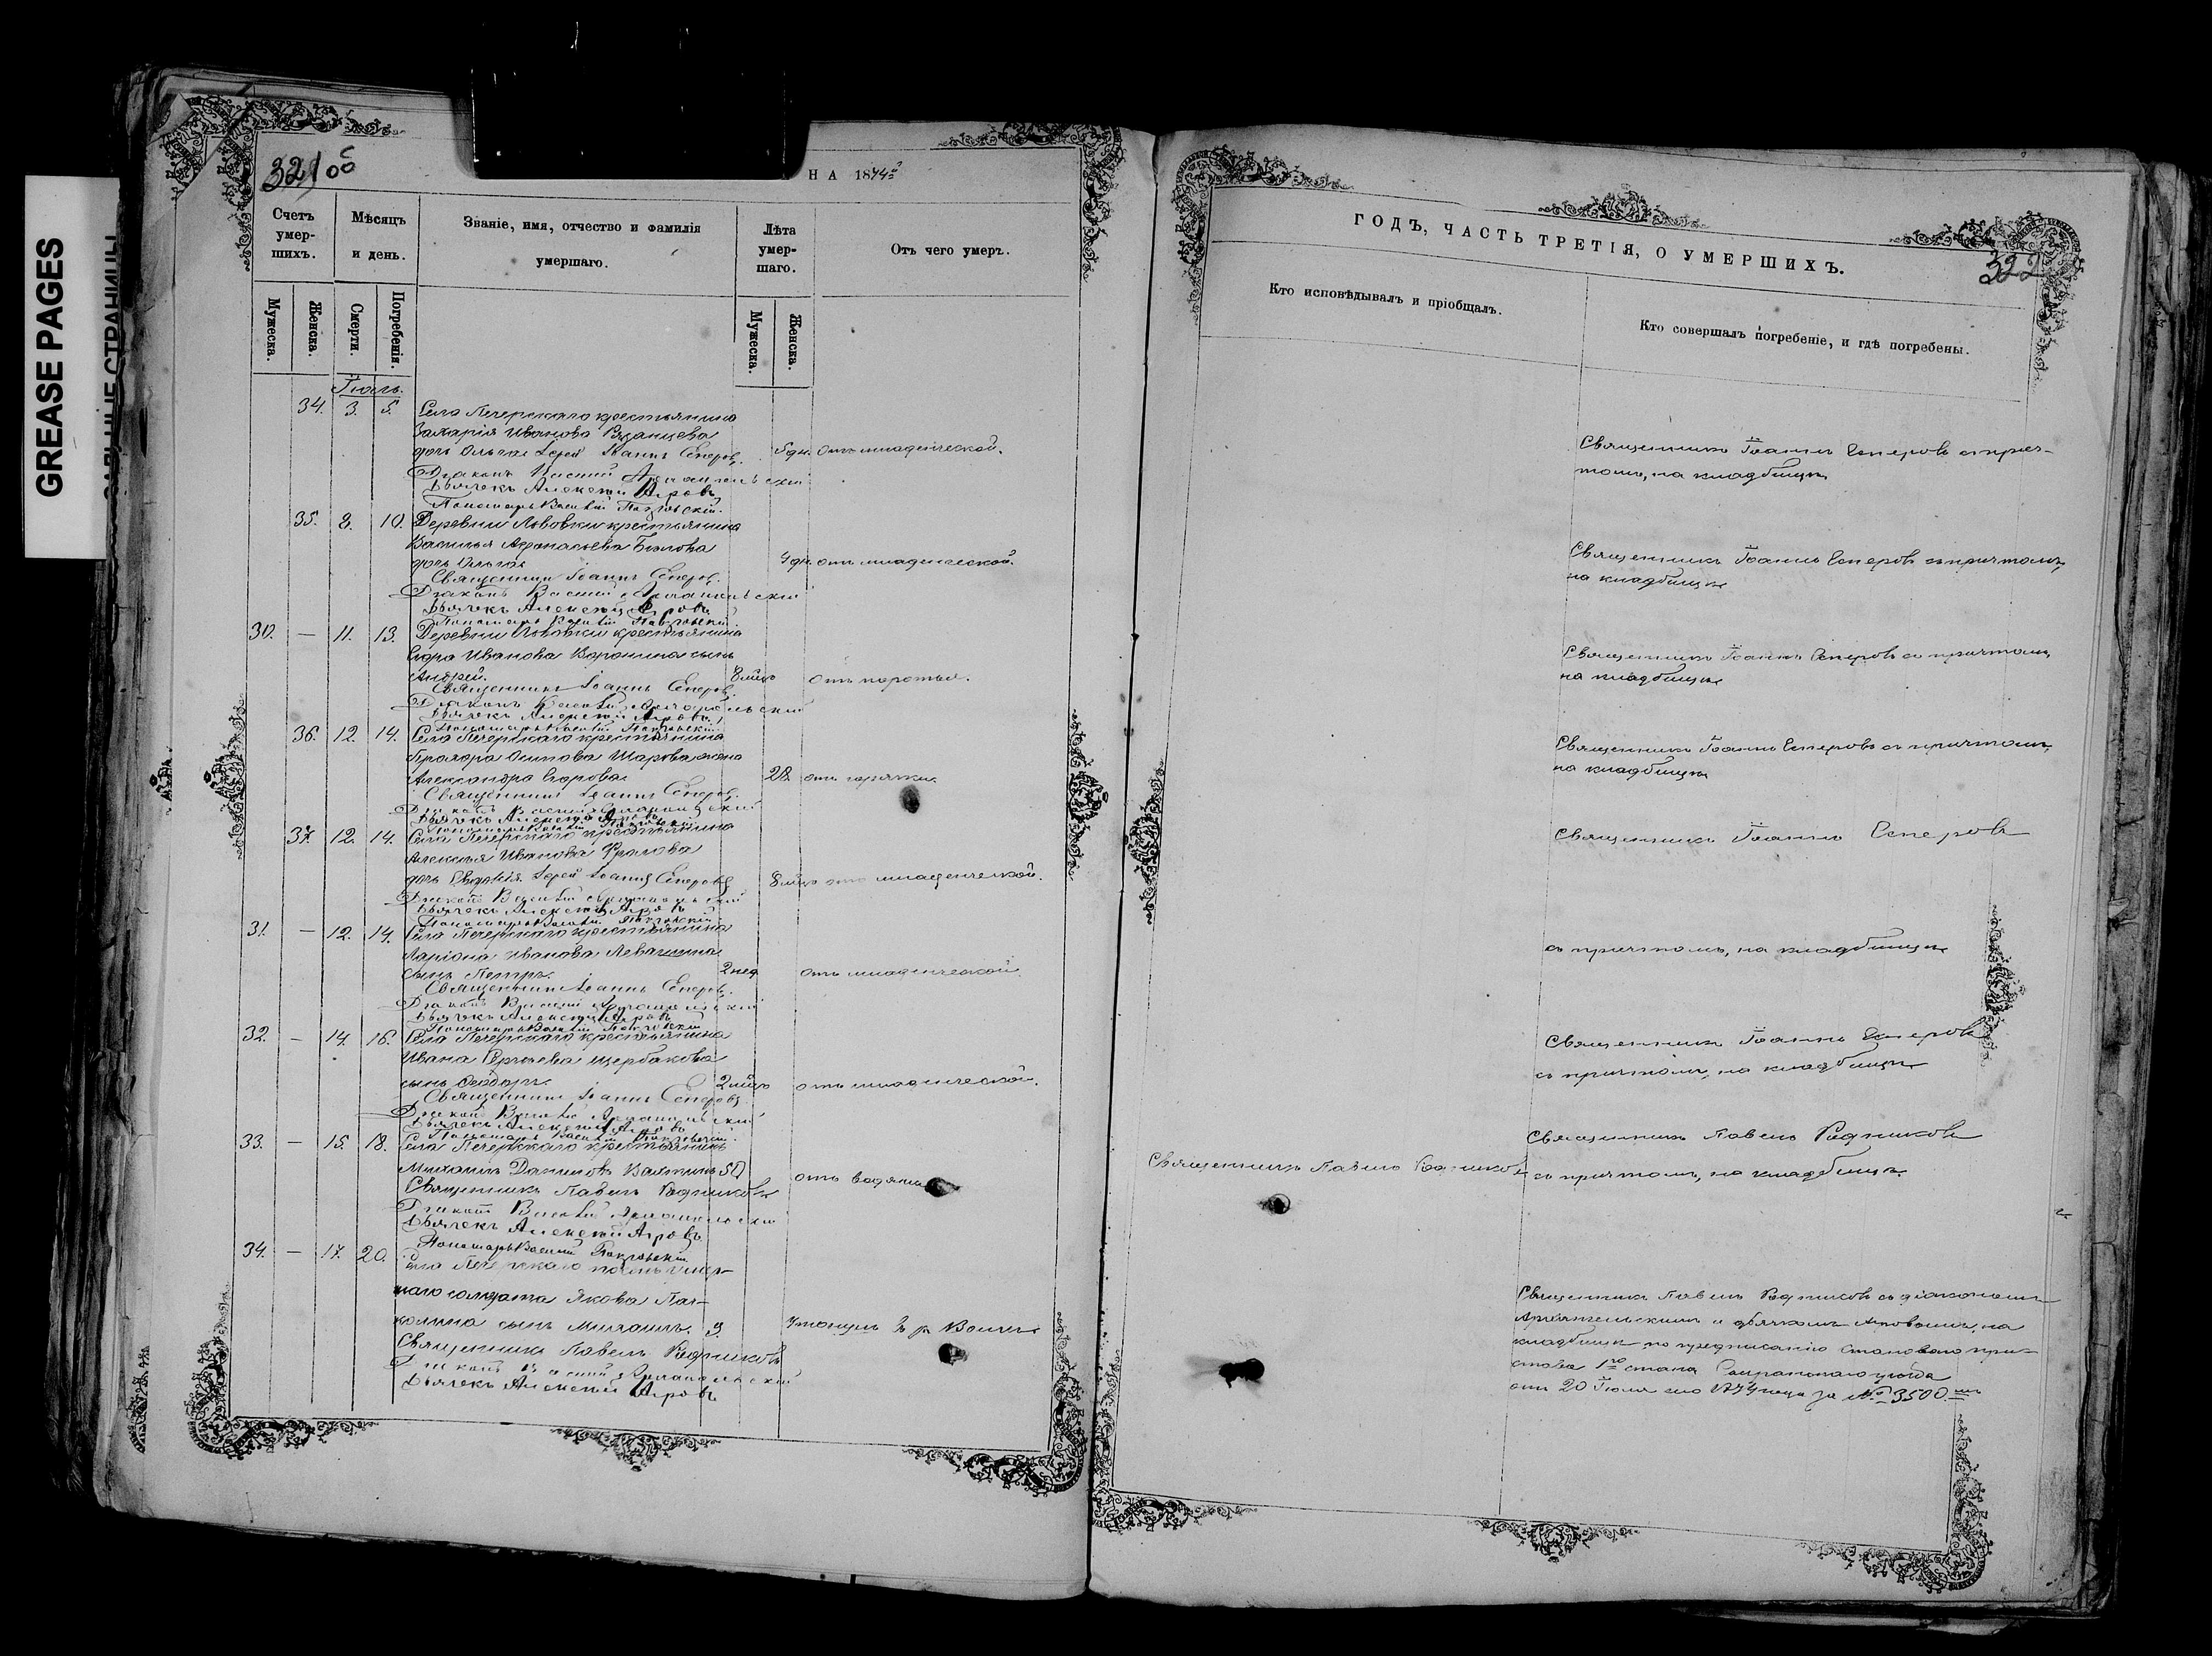 GREASE PAGES
321 об
НА 1874й
Счетъ умер-шихъ.
Мѣсяцъ и день.
Званіе, имя, отчество и фамилія умершаго.
Лѣта умер-шаго.
Отъ чего умеръ.
Мужеска.
Женска.
Смерти.
Погребенія.
Мужеска.
Женска.
Іюль.
34. 3. 5. Села Печерскаго крестьянина
Захарія Иванова Рязанцева
дочь Ольга. Іерей Іоаннъ Есперовъ. 5 дн. отъ младенческой.
Діаконъ Василій Архангельскій
Дьячекъ Алексѣй Агровъ
Пономарь Василій Покровскій.
35. 8. 10. Деревни Львовки крестьянина
Василья Афонасьева Бѣлова
дочь Ольга. 4 дн. отъ младенческой.
Священникъ Іоаннъ Есперовъ.
Діаконъ Василій Архангельскій
Дьячекъ Алексѣй Агровъ
Пономарь Василій Покровскій.
30. — 11. 13. Деревни Львовки крестьянина
Егора Иванова Воронина сынъ
Андрей. 8 мѣсяц отъ коротья.
Священникъ Іоаннъ Есперовъ.
Діаконъ Василій Архангельскій
Дьячекъ Алексѣй Агровъ
Пономарь Василій Покровскій
36. 12. 14. Села Печерскаго крестьянина
Прохора Осипова Шарова жена
Александра Егорова. 28. отъ горячки.
Священникъ Іоаннъ Есперовъ.
Діаконъ Василій Архангельскій
Дьячекъ Алексѣй Агровъ
Пономарь Василій Покровскій
37. 12. 14. Села Печерскаго крестьянина
Алексѣя Иванова Фролова
дочь Евдокія. Іерей Іоаннъ Есперовъ 8 мѣсяц отъ младенческой.
Діаконъ Василій Архангельскій
Дьячекъ Алексѣй Агровъ
Пономарь Василій Покровскій
31. — 12. 14. Села Печерскаго крестьянина
Ларіона Иванова Левашина
сынъ Петръ. 2 нед. отъ младенческой.
Священникъ Іоаннъ Есперовъ.
Діаконъ Василій Архангельскій
Дьячекъ Алексѣй Агровъ
Пономарь Василій Покровскій
32. — 14. 16. Села Печерскаго крестьянина
Ивана Сергѣева Щербакова
сынъ Ѳеодоръ. 2 мѣсяц отъ младенческой.
Священникъ Іоаннъ Есперовъ.
Діаконъ Василій Архангельскій
Дьячекъ Алексѣй Агровъ
Пономарь Василій Покровскій.
33. — 15. 18. Села Печерскаго крестьянинъ
Михаилъ Даниловъ 50 отъ водяны
Священникъ Павелъ Родниковъ
Діаконъ Василій Архангельскій
Дьячекъ Алексѣй Агровъ
Пономарь Василій Покровскій
34. — 17. 20. Села Печерскаго умер-
шаго солдата Якова
сынъ Михаилъ. 9. утонулъ въ р. Волгѣ.
Священникъ Павелъ Родниковъ
Діаконъ Василій Архангельскій
Дьячекъ Алексѣй Агровъ
ГОДЪ, ЧАСТЬ ТРЕТІЯ, О УМЕРШИХЪ.
322
Кто исповѣдывалъ и пріобщалъ.
Кто совершалъ погребеніе, и гдѣ погребены.
Священникъ Іоаннъ Есперовъ съ прич-
томъ, на кладбищѣ
Священникъ Іоаннъ Есперовъ съ причтомъ,
на кладбищѣ
Священникъ Іоаннъ Есперовъ съ причтомъ,
на кладбищѣ
Священникъ Іоаннъ Есперовъ съ причтомъ,
на кладбищѣ
Священникъ Іоаннъ Есперовъ
съ причтомъ, на кладбищѣ
Священникъ Іоаннъ Есперовъ
съ причтомъ, на кладбищѣ
Священникъ Павелъ Родниковъ
Священникъ Павелъ Родниковъ
съ причтомъ, на кладбищѣ.
Священникъ Павелъ Родниковъ съ діакономъ
Архангельскимъ и дьячкомъ Агровымъ, на
кладбищѣ по предписанію становаго при-
става 1го стана Сызранскаго уѣзда
отъ 20 Іюля сего 1874 года за № 3500.